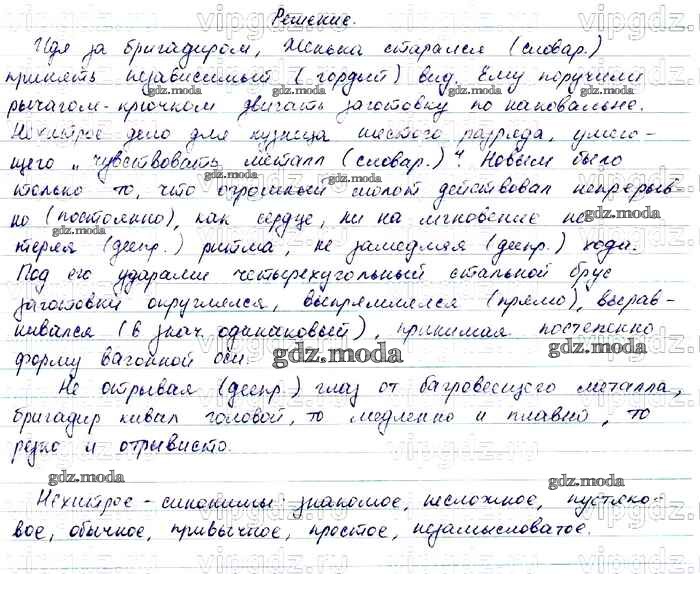 Решение.
Идя за бригадиром, Женька старался (словар.)
принять независимый (гордый) вид. Ему поручили
рычагом-крючком двигать заготовку по наковальне.
Нехитрое дело для кузнеца шестого разряда, умею-
щего "чувствовать металл (словар.)". Новым было
только то, что огромный молот действовал непрерыв-
но (постоянно), как сердце, ни на мгновение не
теряя (деепр.) ритма, не замедляя (деепр.) хода.
Под его ударами четырехугольный стальной брус
заготовки округлялся, выпрямлялся (прямо), вырав-
нивался (в знач. одинаковый), принимая постепенно
форму вагонной оси.
Не отрывая (деепр.) глаз от багровеющего металла,
бригадир кивал головой, то медленно и плавно, то
резко и отрывисто.
Нехитрое - синонимы: знакомое, несложное, пустяко-
вое, обычное, привычное, простое, незамысловатое.